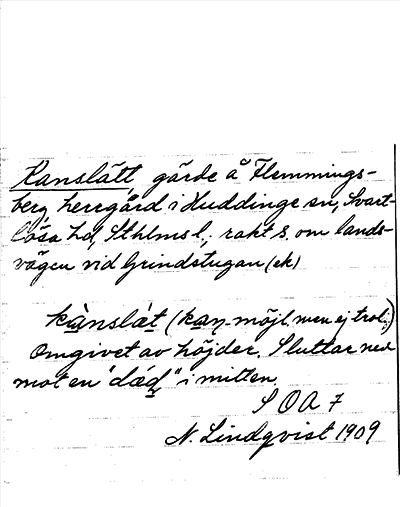 Kanslätt, gärde å Flemmings-
berg, herregård i Huddinge sn, Svart-
lösa hd, Sthlms l; rakt S. om lands-
vägen vid Grindstugan (ek)
kànslá̤t (kan- möjl. men ej trol.)
Omgivet av höjder. Sluttar ned
mot en "däḍ" i mitten.
S O A 7
N. Lindqvist 1909